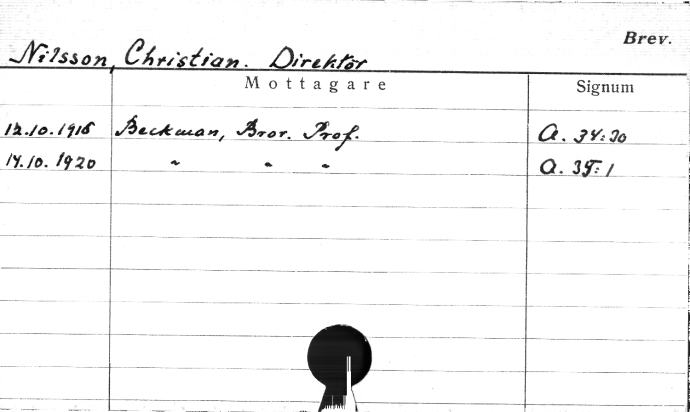 Brev.
Nilsson, Christian. Direktör
Mottagare Signum
12.10.1916 Beckman, Bror. Prof. A. 34:30
14.10.1920 " " " A. 35:1